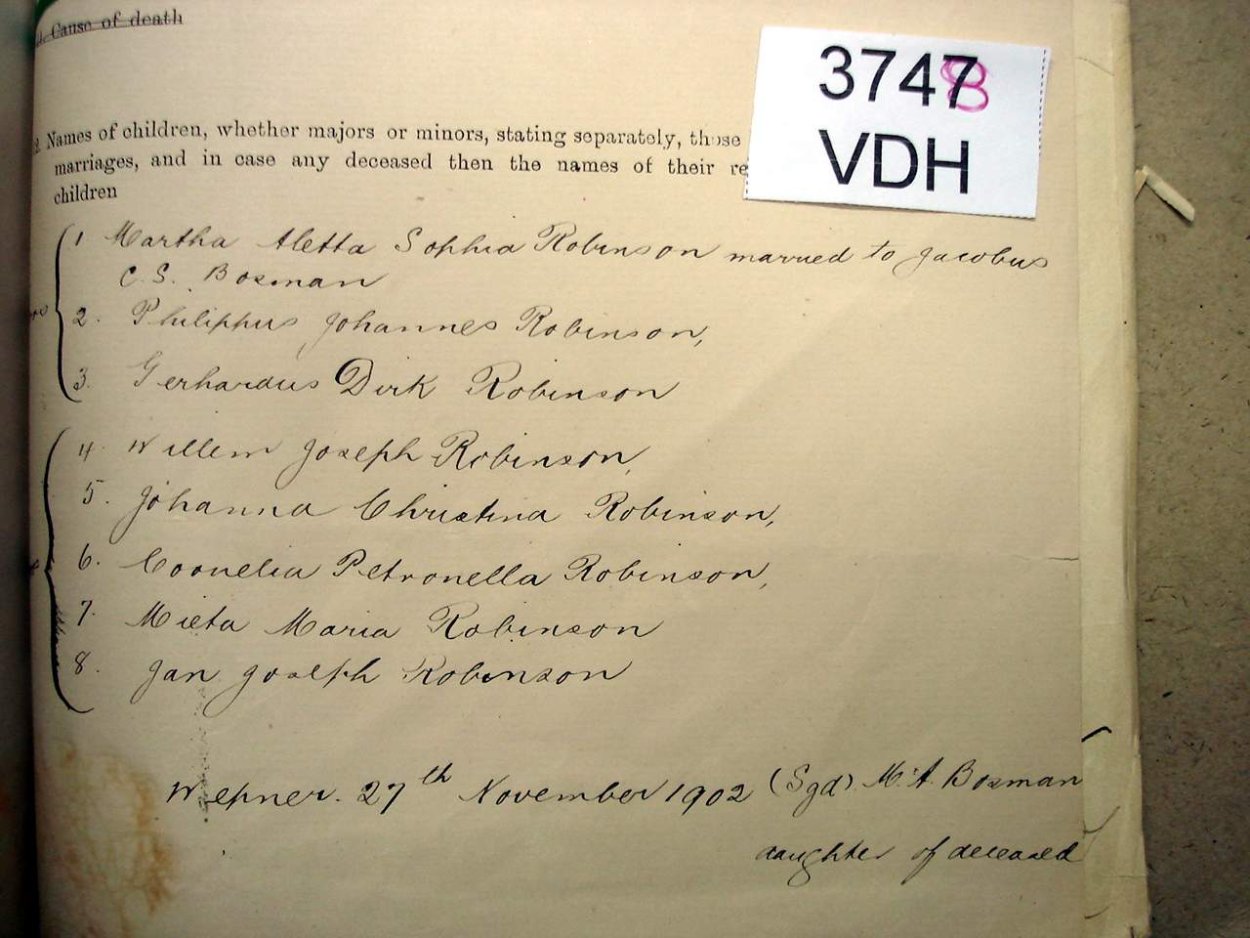 Cause of death
3747 8
VDH
2. Names of children, whether majors or minors, stating separately, those
marriages, and in case any deceased then the names of their re
children
1 Martha Aletta Sophia Robinson married to Jacobus
C. S. Bosman
2. Philippus Johannes Robinson,
3. Gerhardus Dirk Robinson
4. Willem Joseph Robinson,
5. Johanna Christina Robinson,
6. Cornelia Petronella Robinson,
7. Mieta Maria Robinson
8. Jan Joseph Robinson
Wepner. 27th November 1902 (Sgd) M. A. Bosman
daughter of deceased